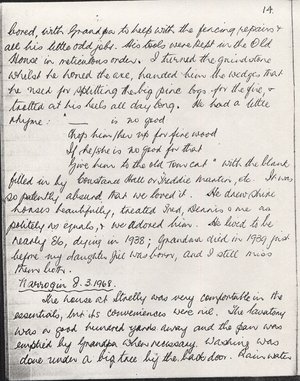 14.
bored, with Grandpa to help with the fencing, repairs &
all his little odd jobs. His tools were kept in the Old
House in meticulous order. I turned the grindstone
whilst he honed the axe, handed him the wedges that
he used for splitting the big pine logs for the fire, &
trotted at his heels all day long. He had a little
rhyme: " ——— is no good
Chop him/her up for fire wood
If he/she is no good for that
Give him to the old Tom cat" with the blank
filled in by Constance Hall or Freddie, etc. It was
so patently absurd that we loved it. He drew
horses beautifully, treated Fred, Dennis & me as
politely as equals, & we adored him. He lived to be
nearly 86, dying in 1938; Grandma died in 1939 just
before my daughter Jill was born, and I still miss
them both.
Narrogin 8.3.1968.
The house at Stretly was very comfortable in the
essentials, but its conveniences were nil. The lavatory
was a good hundred yards away and the pan was
emptied by Grandpa when necessary. Washing was
done under a big tree by the back door. Rain water